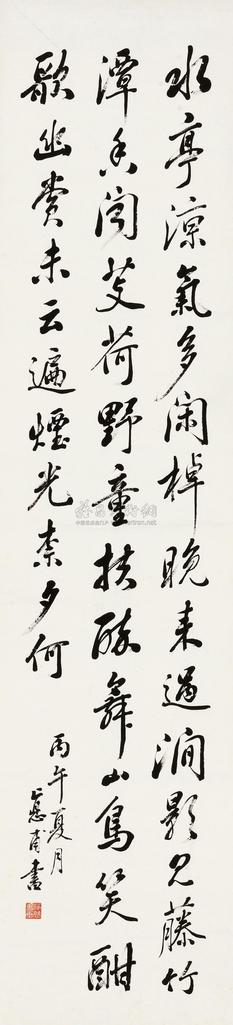 水亭凉氣多闲棹晚来過澗影見藤竹
潭香聞芰荷野童扶醉舞山鳥笑酣
歌幽赏未云遍煙光奈夕何
丙午夏月
甫書